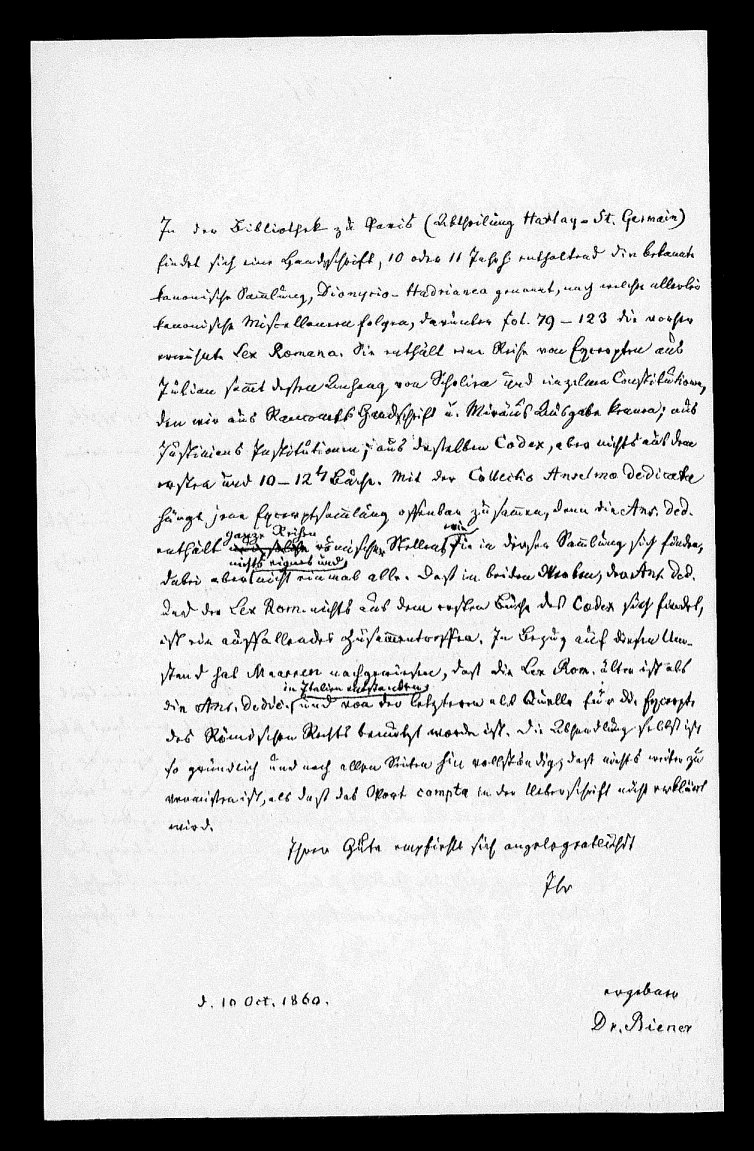 In der Bibliothek zu Paris (Abtheilung Harlay-St. Germain)
findet sich eine Handschrift, 10 oder 11 Jahrh. enthaltend die bekannte
kanonische Sammlung, Dionysio-Hadrianea genannt, nach welcher allerlei
kanonische Miscellaneen folgen, darunter fol. 79-123 die vorher
erwähnte Lex Romana. Sie enthält eine Reihe von Excerpten aus
Julian sammt dessen Anhang von Scholien und einzelnen Constitutionen,
den wir aus Ranconets Handschrift u. Miräus Ausgabe kennen; aus
Justinians Institutionen; aus desselben Codex, aber nichts aus dem
ersten und 10-12ᵗ Buche. Mit der Collectio Anselmo dedicata
hängt jene Excerptsammlung offenbar zusammen, denn die Ans. ded.
enthält ganze Reihen römischer Stellen, wie sie in dieser Sammlung sich finden,
dabei aber nichts eignes und nicht einmal alle. Dass in beiden Werken, der Ans. ded.
und der Lex Rom. nichts aus dem ersten Buche des Codex sich findet,
ist ein auffallendes Zusammentreffen. In Bezug auf diesen Um-
stand hat Maassen nachgewiesen, dass die Lex Rom. älter ist als
die Ans. dedic. in Italien entstanden und von der letzteren als Quelle für die Excerpte
des Römischen Rechts benutzt worden ist. Die Abhandlung selbst ist
so gründlich und nach allen Seiten hin vollständig, dass nichts weiter zu
vermissen ist, als dass das Wort compta in der Ueberschrift nicht erklärt
wird.
Ihrer Güte empfiehlt sich angelegentlichst
Ihr
ergebener
d. 10 Oct. 1860.
Dr. Biener